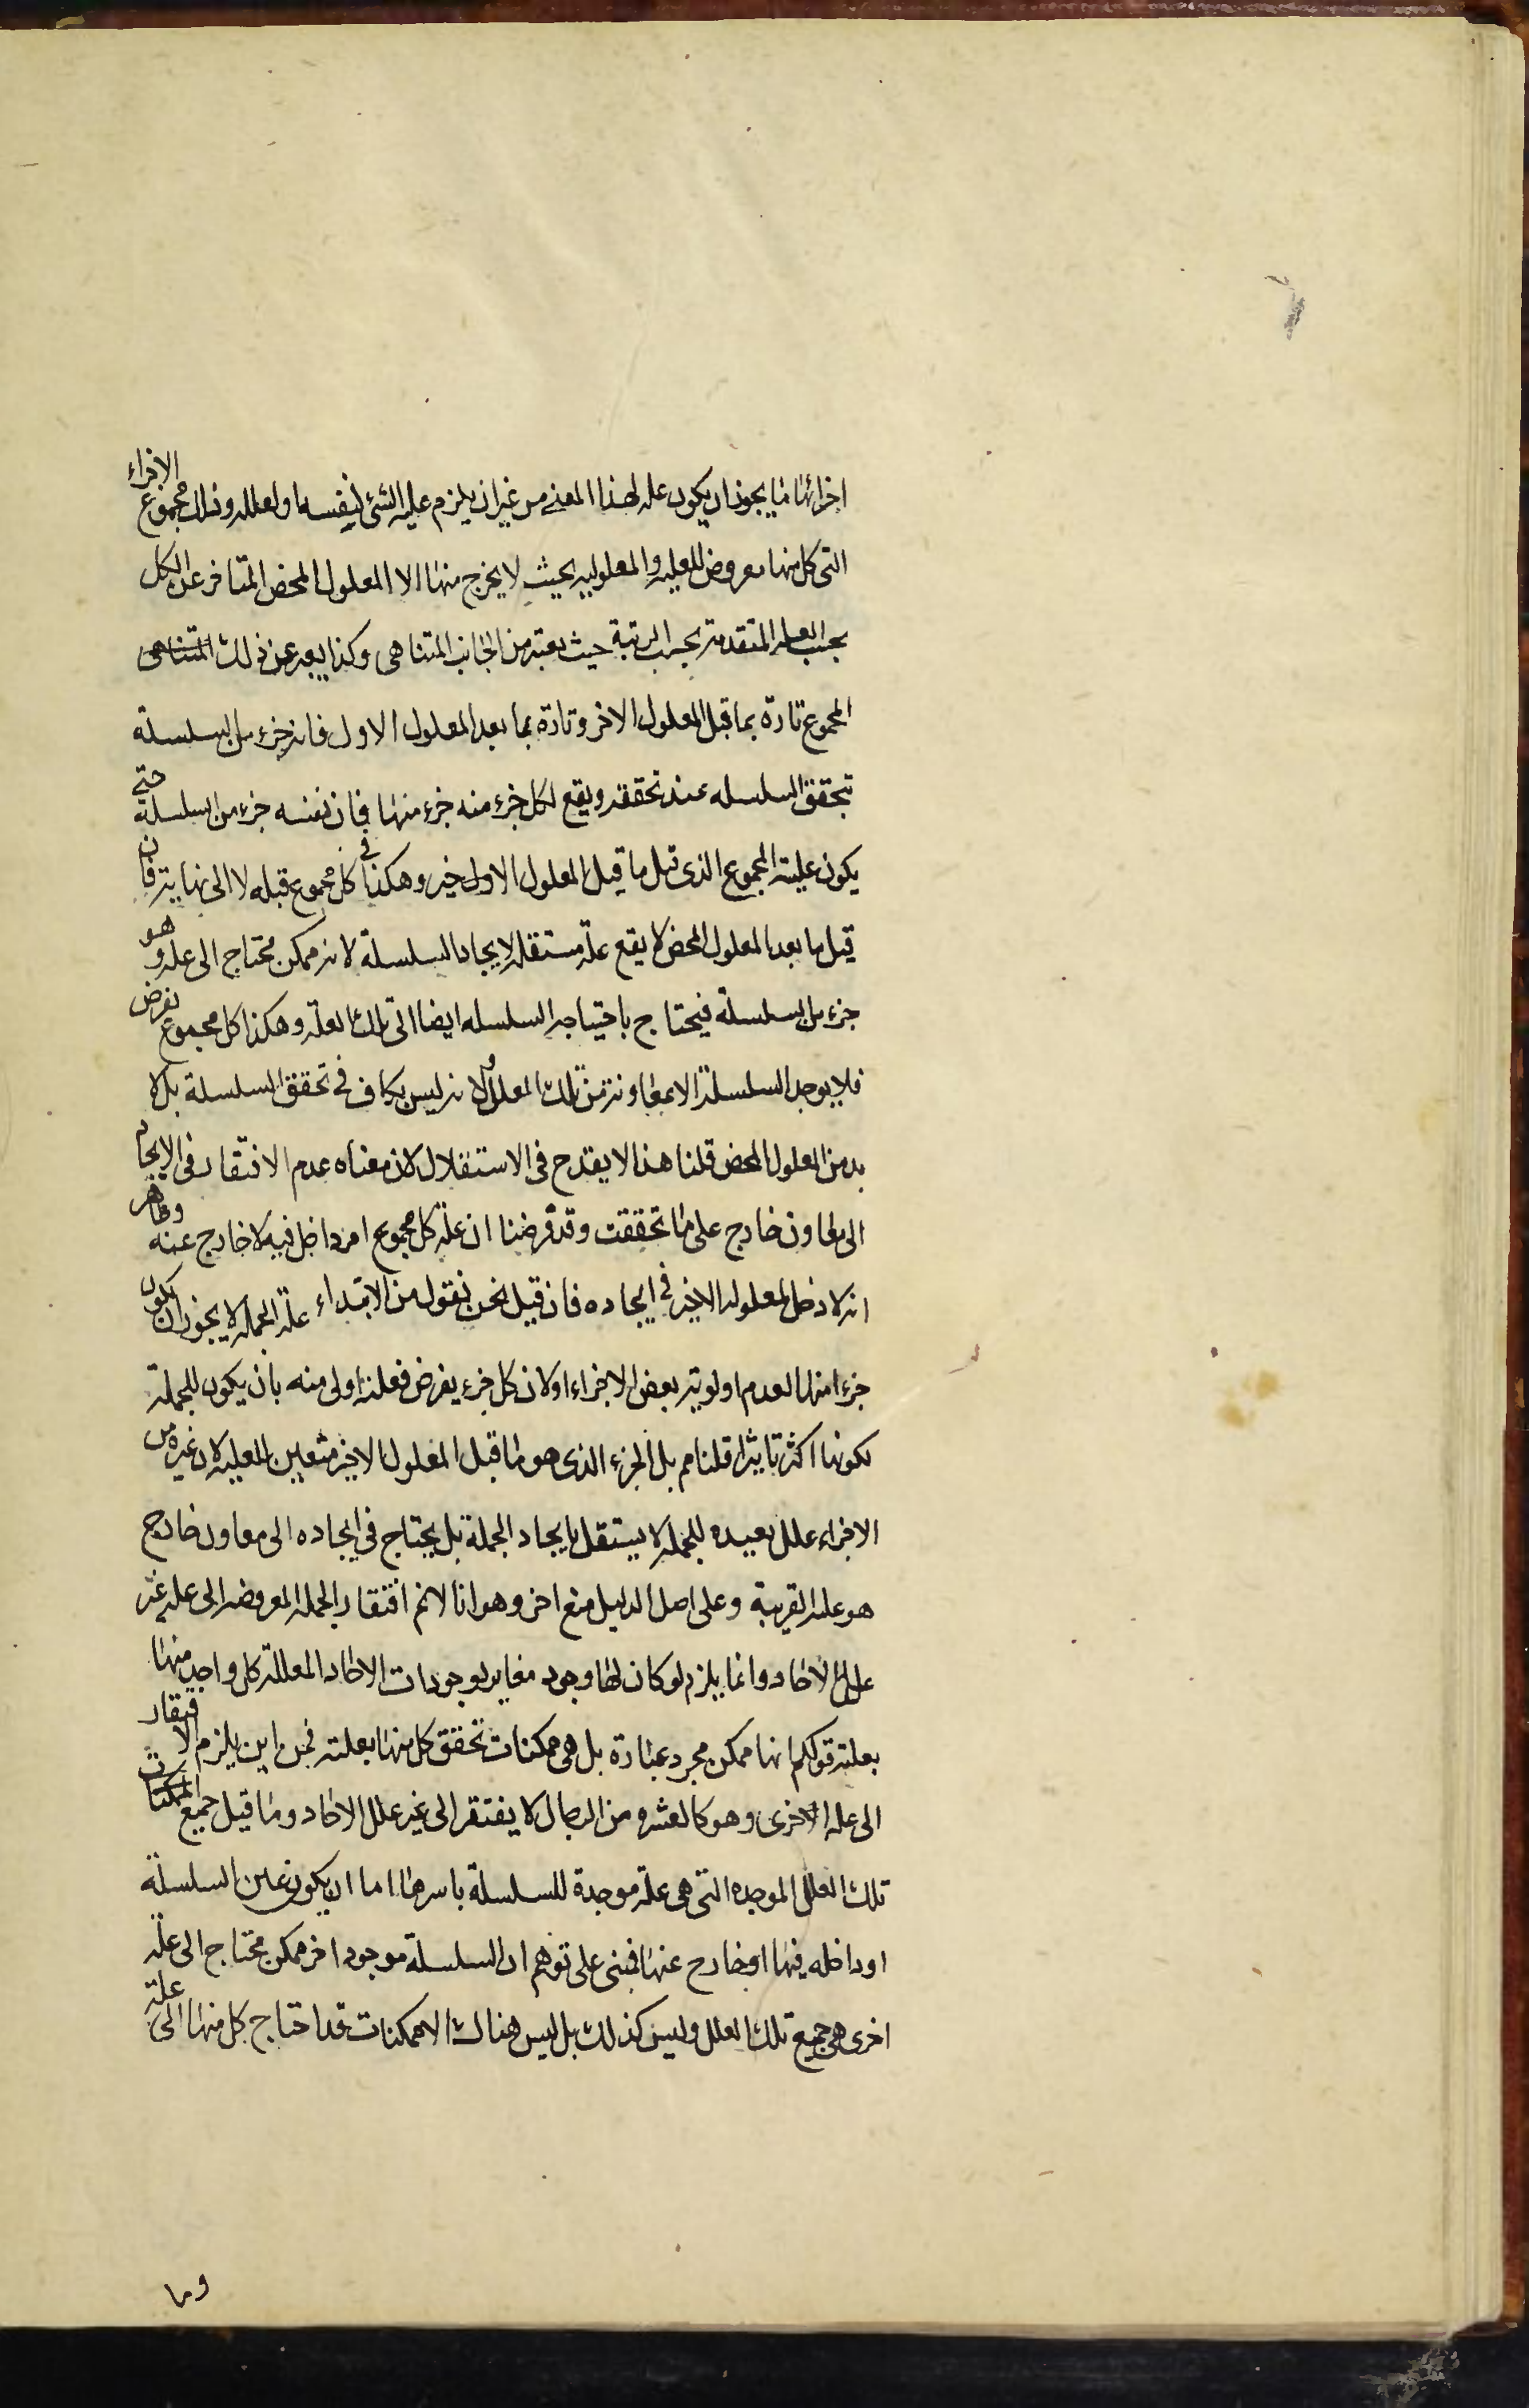 اجزائها ما يجوز ان يكون علة لهذا المعنى من غير ان يلزم علية الشئ لنفسه او لعلله وذلك مجموع الاجزاء
التى كل منها معروض للعلية والمعلولية بحيث لا يخرج منها الا المعلول المحض المتاخر عن الكل
بحسب العلية المتقدمة بحسب الرتبة حيث يعتبر من الجانب المتناهى وكذا يعبر عن ذلك المتناهى
المجموع تارة بما قبل المعلول الاخر وتارة بما بعد المعلول الاول فانه جزء من السلسلة
تتحقق السلسله عند تحققه ويقع لكل جزء منه جزء منها فان نفسه جزء من السلسلة حتى
يكون علية المجموع الذى قبل ما قبل المعلول الاول خير وهكذا فى كل مجموع قبله لا الى نهاية فان
قيل ما بعد المعلول المحض لا يقع علة مستقلة لايجاد السلسلة لانه ممكن محتاج الى علة وهو
جزء من السلسلة فيحتاج باحتياجه السلسله ايضا الى تلك العلة وهكذا كل مجموع نفرض
فلا يوجد السلسلة الا بمعاونة من تلك العلل ولانه ليس بكاف فى تحقق السلسلة بل لا
بد من المعلول المحض قلنا هذا لا يقدح فى الاستقلال لان معناه عدم الافتقار فى الايجاد
الى معاون خارج على ما تحققت وقد فرضنا ان علة كل مجموع امر داخل فيه لا خارج عنه وظاهر
انه لا دخل لمعلوله الاخير فى ايجاده فان قيل نحن نقول من الابتداء علة الجملة لا يجوز ان يكون
جزءا منها لعدم اولوية بعض الاجزاء او لان كل جزء يفرض فعلته اولى منه بان يكون للجملة
لكونها اكثر تاثيرا قلنا مم بل الجزء الذى هو ما قبل المعلول الاخير متعين للعلية لان غيره من
الاجزاء علل بعيده للجملة لا يستقل بايجاد الجملة بل يحتاج فى ايجاده الى معاون خارج
هو علته القريبة وعلى اصل الدليل منع اخر وهو انا لا نم افتقار الجملة المعروضه الى علة غير
علل الاحاد وانما يلزم لو كان لها وجود مغاير لوجودات الاحاد المعللة كل واحد منها
بعلته قولكم انها ممكن مجرد عبارة بل هى ممكنات تحقق كل منها بعلته فمن اين يلزم الافتقار
الى علة الاخرى وهو كالعشرة من الرجال لا يفتقر الى غير علل الاحاد وما قيل جميع الممكنات
تلك العلل الموجده التى هى علة موجدة للسلسلة باسرها اما ان يكون عين السلسلة
او داخله فيها او خارج عنها فمبنى على توهم ان السلسلة موجود اخر ممكن محتاج الى علة
اخرى هى جميع تلك العلل وليس كذلك بل ليس هناك الا ممكنات قد احتاج كل منها الى علة
وما